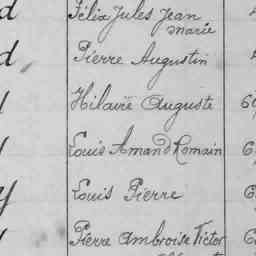 Félix Jules Jean
marie
Pierre Augustin
Hilaire Auguste
Louis Amand Romain
Louis Pierre
Pierre Ambroise Victor